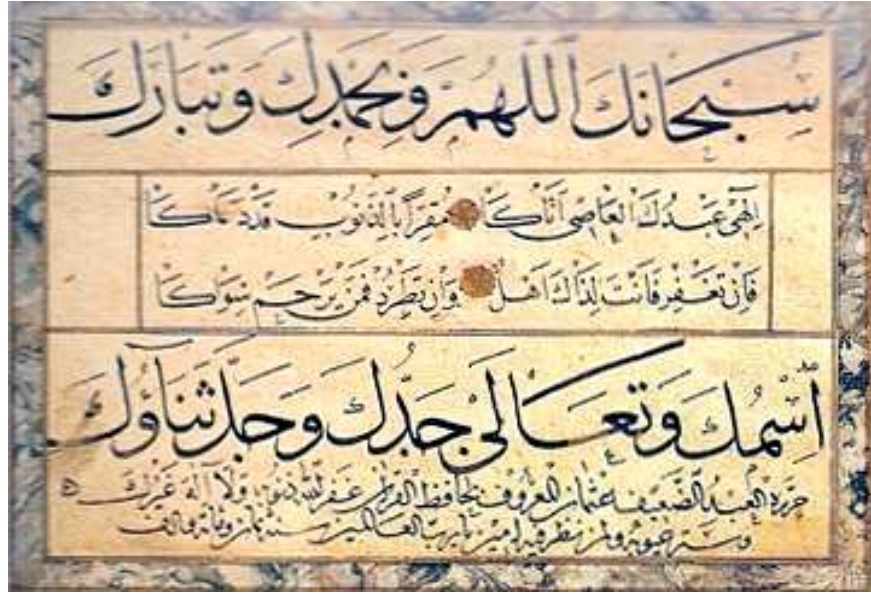 سُبْحَانَكَ اللَّهُمَّ وَبِحَمْدِكَ وَتَبَارَكَ
اِلٰهِى عَبْدُكَ الْعَاصِى اَتَاكَا مُقِرًّا بِالذُّنُوبِ وَقَدْ دَعَاكَا
فَاِنْ تَغْفِرْ فَاَنْتَ لِذَاكَ اَهْلٌ وَاِنْ تَطْرُدْ فَمَنْ يَرْحَمْ سِوَاكَا
اسْمُكَ وَتَعَالَى جَدُّكَ وَجَلَّ ثَنَاؤُكَ
حرره العبد الضعيف عثمان المعروف بحافظ القرآن غفر الله ذنوبه وَلَا اِلٰهَ غَيْرُكَ
وستر عيوبه ولمن نظر فيه امين يا رب العالمين سنة ثمان ومائة والف